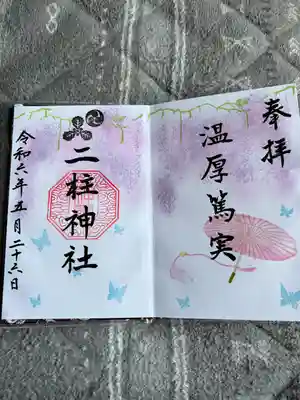 奉拝
温厚篤実
二柱神社
令和六年五月二十六日